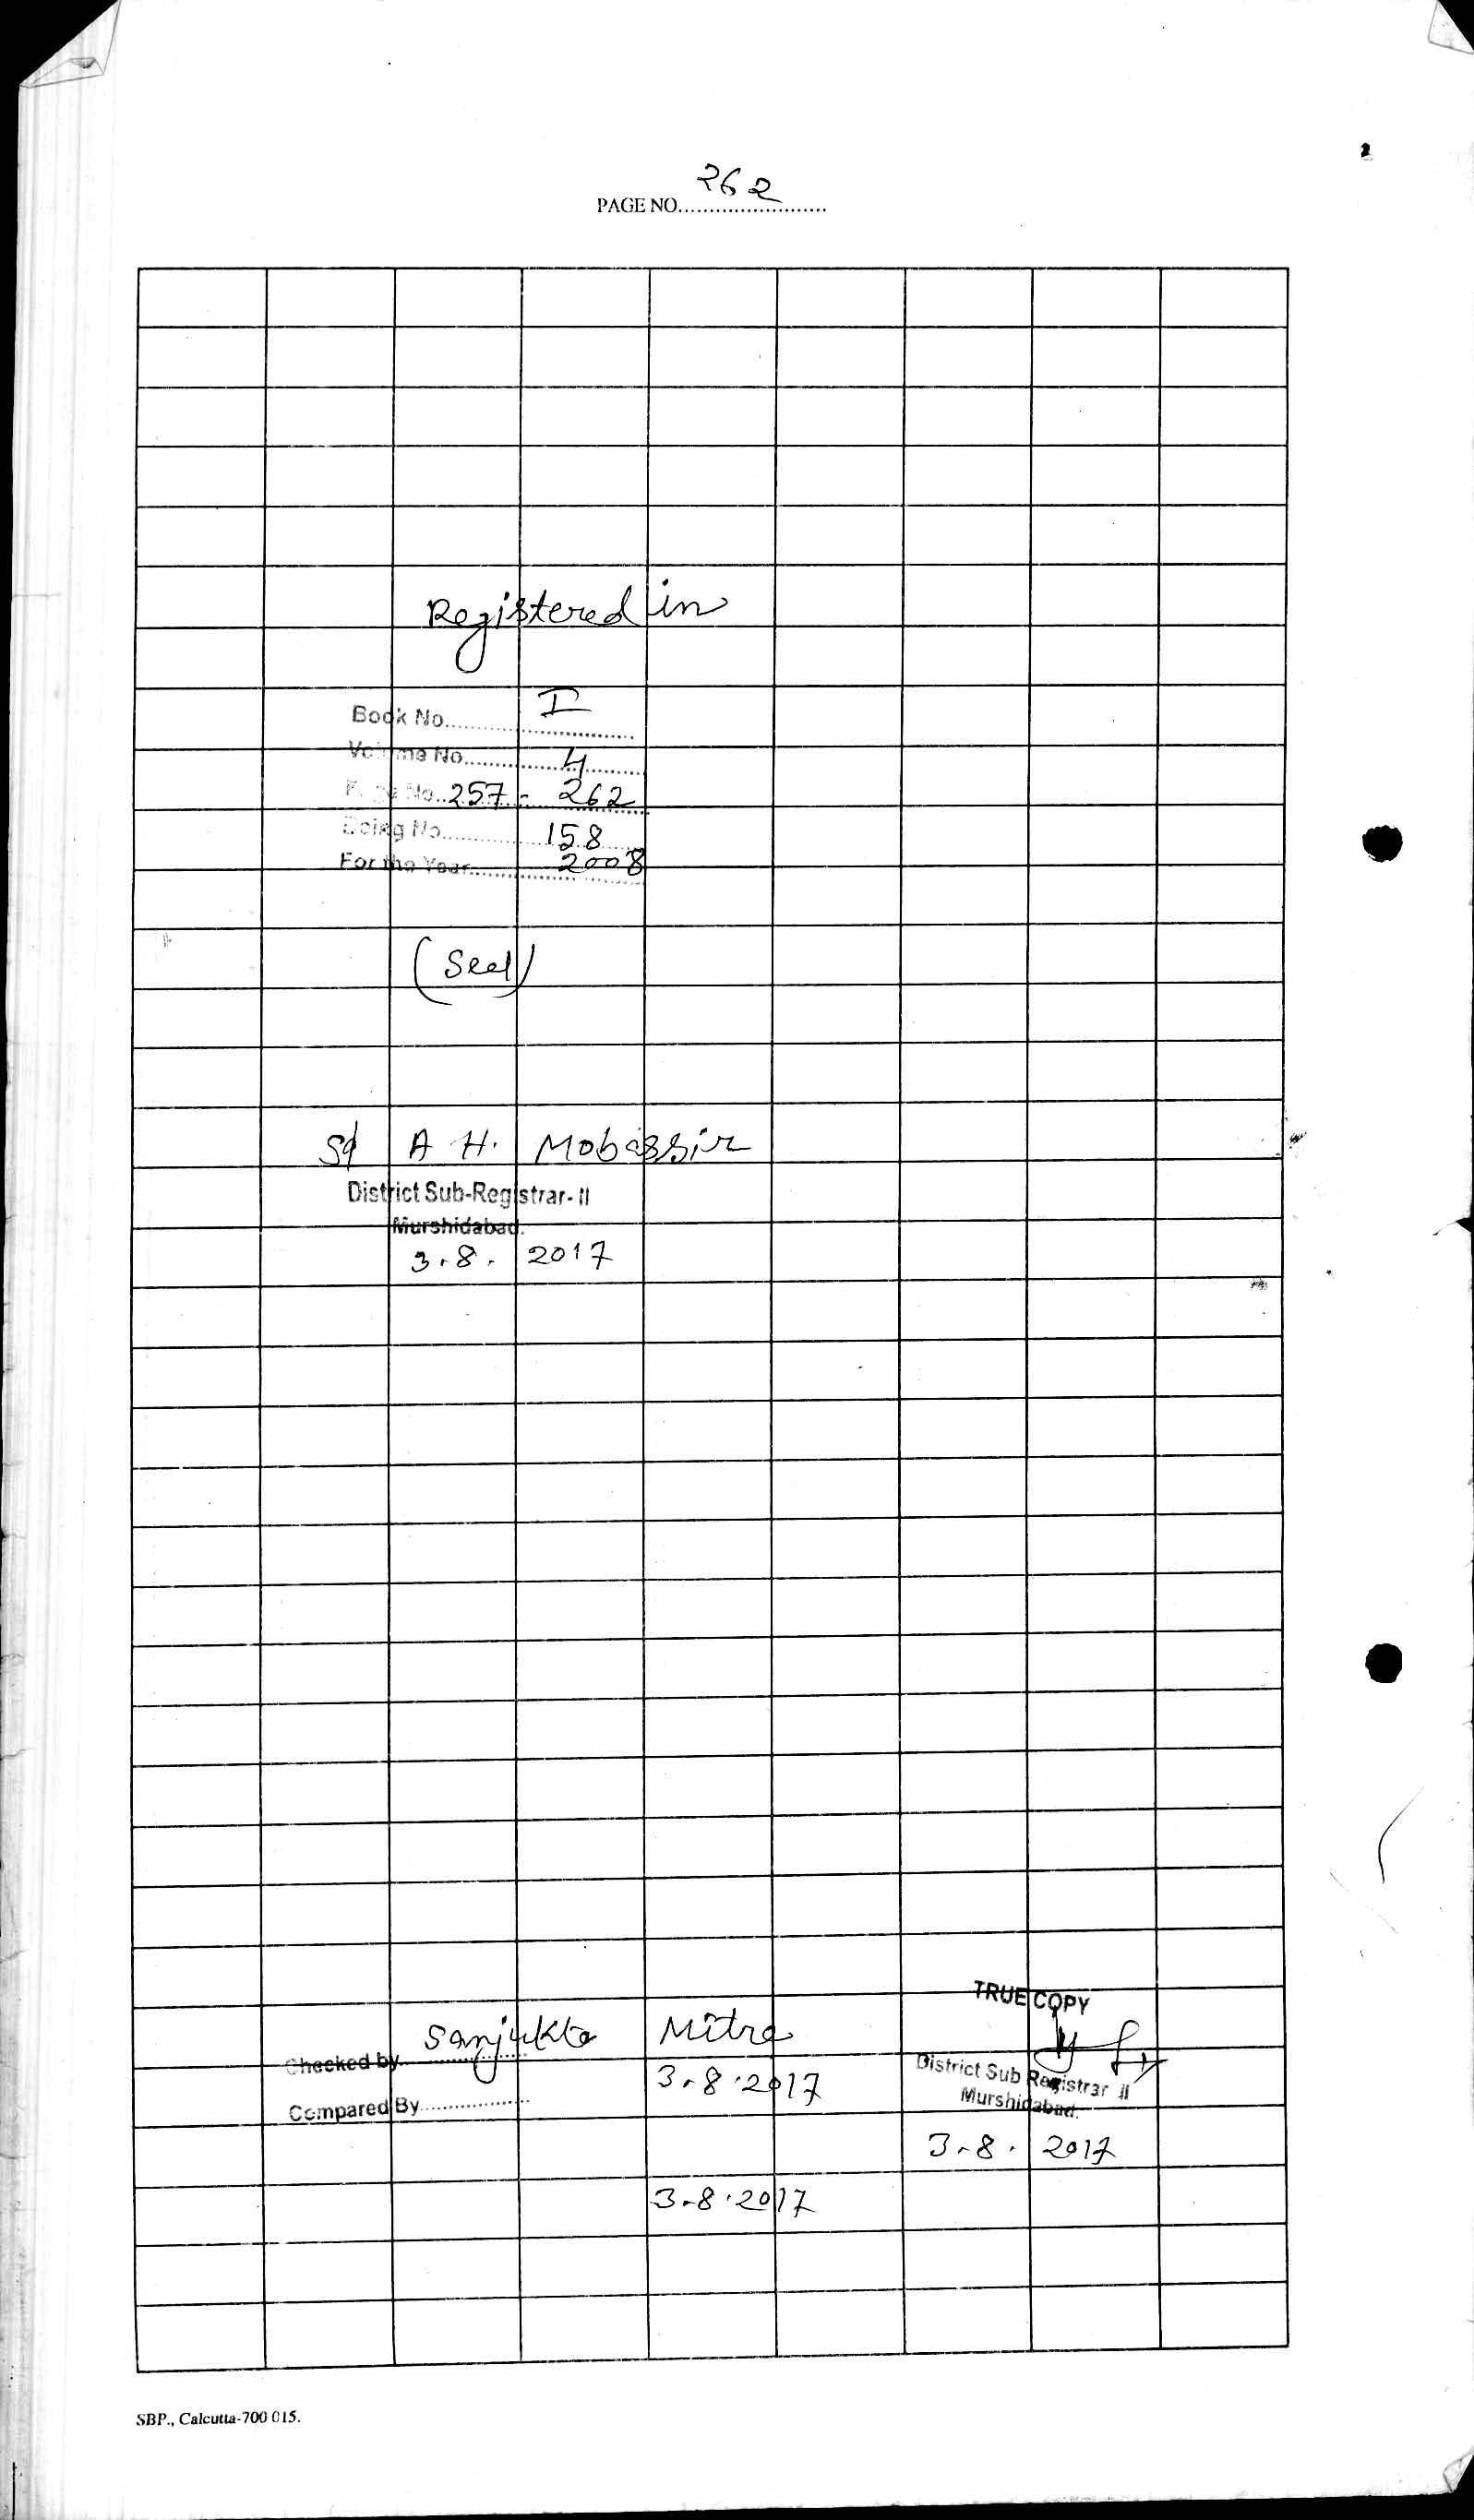 262
PAGE NO........................
Registered in
Book No. I
Volume No. 4
Page No. 257 - 262
Being No. 158
For the Year 2008
(Seal)
Sd A H. Mobassir
District Sub-Registrar-II
Murshidabad.
3.8.2017
TRUE COPY
Checked by Sanjukta Mitra
3.8.2017
Compared By
District Sub Registrar II
Murshidabad.
3.8.2017
3.8.2017
SBP., Calcutta-700 015.